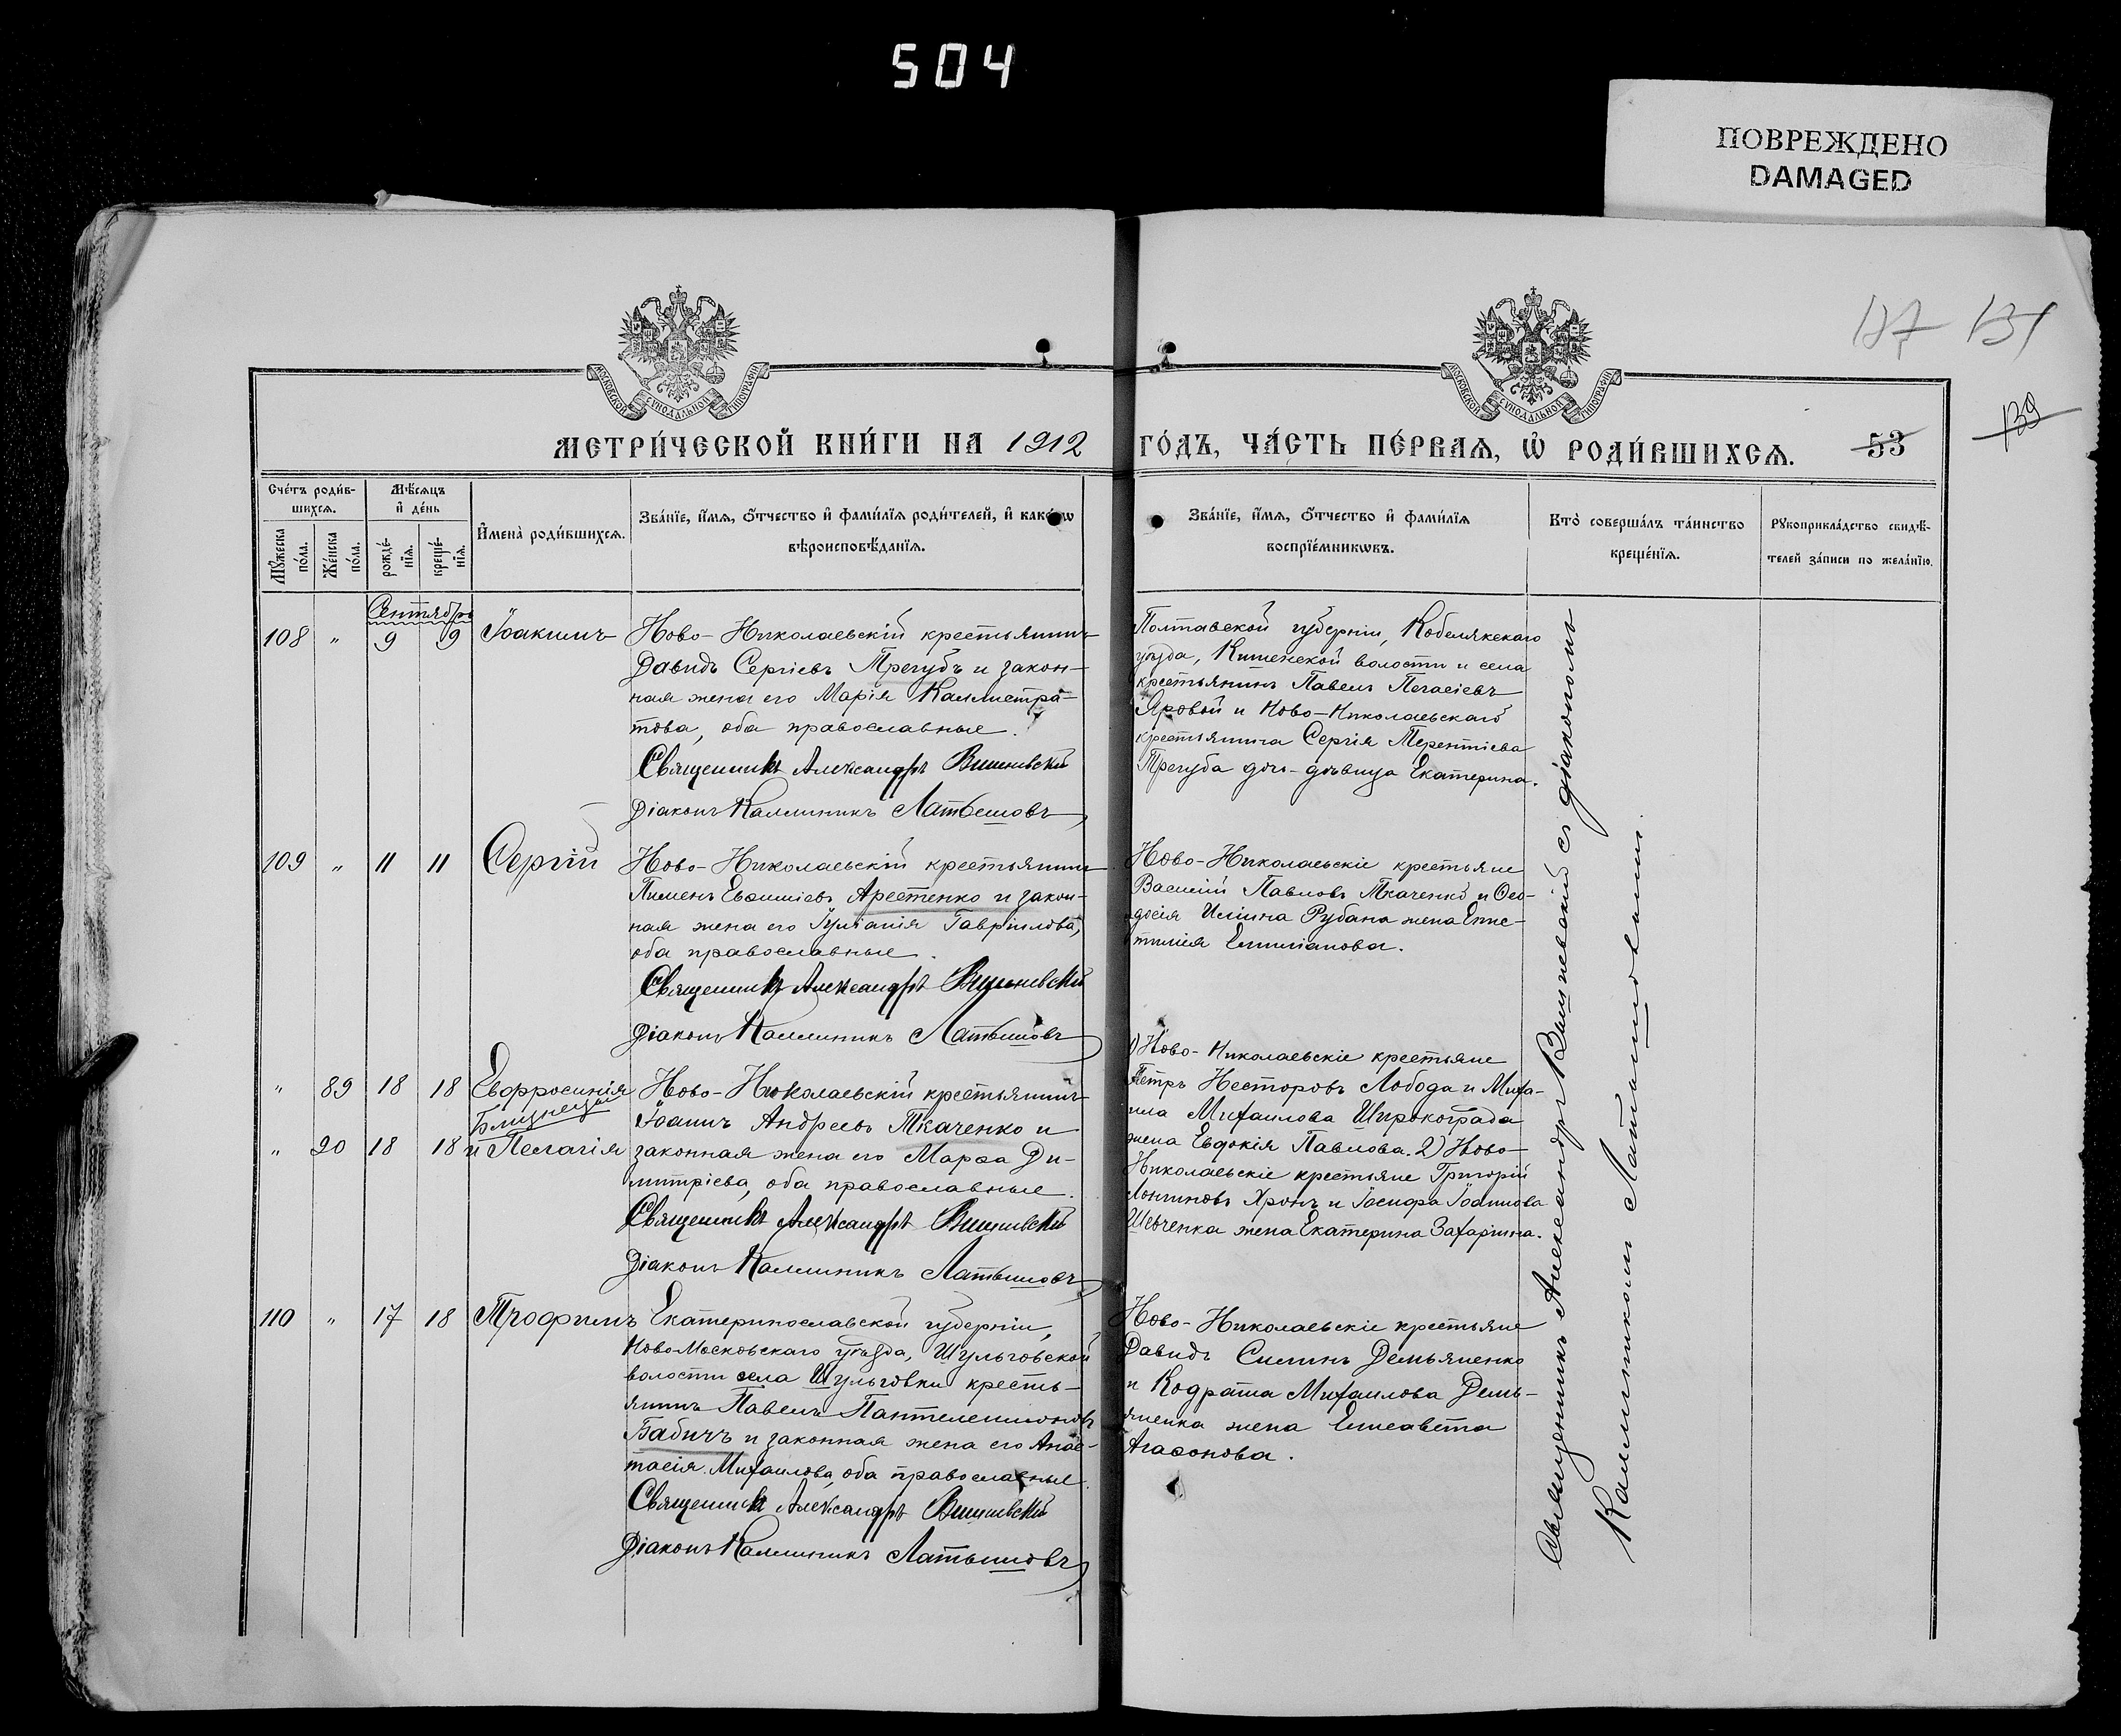 504
ПОВРЕЖДЕНО
DAMAGED
137 131
139
МОСКОВСКОЙ СУНОДАЛЬНОЙ ТИПОГРАФІИ
МОСКОВСКОЙ СУНОДАЛЬНОЙ ТИПОГРАФІИ
МЕТРИ́ЧЕСКОЙ КНИ́ГИ НА 1912 ГО́ДЪ, ЧА́СТЬ ПЕ́РВАѦ, Ѡ҆ РОДИ́ВШИХСѦ. 53
Сче́тъ роди́в-
шихсѧ.
Мꙋ́жеска по́ла.
Же́нска по́ла.
Мѣ́сѧцъ
и҆ де́нь
рожде́-
нїѧ.
креще́-
нїѧ.
И҆мена̀ роди́вшихсѧ.
Зва́нїе, и҆́мѧ, ѻ҆́тчество и҆ фами́лїѧ роди́телей, и҆ како́гѡ
вѣроисповѣ́данїѧ.
Зва́нїе, и҆́мѧ, ѻ҆́тчество и҆ фами́лїѧ
воспрїе́мникѡвъ.
Кто̀ соверша́лъ та́инство
креще́нїѧ.
Рꙋкоприкла́дство свидѣ́-
телей за́писи по жела́нїю.
Сентябрь
108 " 9 9 Іоакимъ
Ново-Николаевскій крестьянинъ
Давидъ Сергіевъ Трегубъ и закон-
ная жена его Марія Каллистра-
това, оба православные.
Священникъ Александръ Вишневскій
Діаконъ Каллиникъ Латышовъ
Полтавской губерніи, Кобелякскаго
уѣзда, Кишенской волости и села
крестьянинъ Павелъ Пегасіевъ
Яровой и Ново-Николаевскаго
крестьянина Сергія Терентіева
Трегуба дочь-дѣвица Екатерина.
109 " 11 11 Сергій
Ново-Николаевскій крестьянинъ
Пименъ Евѳиміевъ Арестенко и закон-
ная жена его Іуліанія Гавріилова,
оба православные.
Священникъ Александръ Вишневскій
Діаконъ Каллиникъ Латышовъ
Ново-Николаевскіе крестьяне
Василій Павловъ Ткаченко и Ѳео-
досія Иліина Рубана жена Епис-
тимія Емиліанова.
" 89 18 18 Евфросинія
Близнецы
" 90 18 18 и Пелагія
Ново-Николаевскій крестьянинъ
Іоаннъ Андреевъ Ткаченко и
законная жена его Марѳа Ди-
митріева, оба православные.
Священникъ Александръ Вишневскій
Діаконъ Каллиникъ Латышовъ
1) Ново-Николаевскіе крестьяне
Петръ Несторовъ Лобода и Миха-
ила Михаилова Широкограда
жена Евдокія Павлова. 2) Ново-
Николаевскіе крестьяне Григорій
Лонгиновъ Хронъ и Іосифа Іоаннова
Шевченка жена Екатерина Захаріина.
110 " 17 18 Трофимъ
Екатеринославской губерніи,
Ново-Московскаго уѣзда, Шульговской
волости села Шульговки кресть-
янинъ Павелъ Пантелеимоновъ
Бабичъ и законная жена его Анас-
тасія Михаилова, оба православные.
Священникъ Александръ Вишневскій
Діаконъ Каллиникъ Латышовъ
Ново-Николаевскіе крестьяне
Давидъ Силинъ Демьяненко
и Кодрата Михаилова Демь-
яненка жена Елисавета
Агаѳонова.
Священникъ Александръ Вишневскій съ діакономъ
Каллиникомъ Латышовымъ.